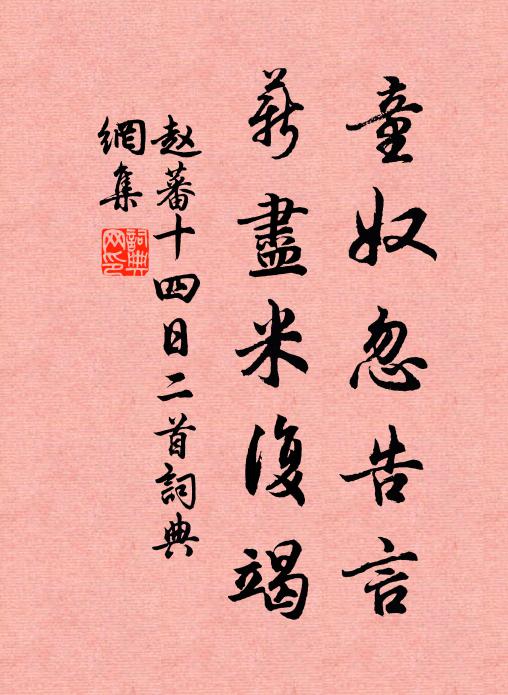 童奴忽告言
薪盡米復竭
赵蕃十四日二首詞典
網集
詞典
网印